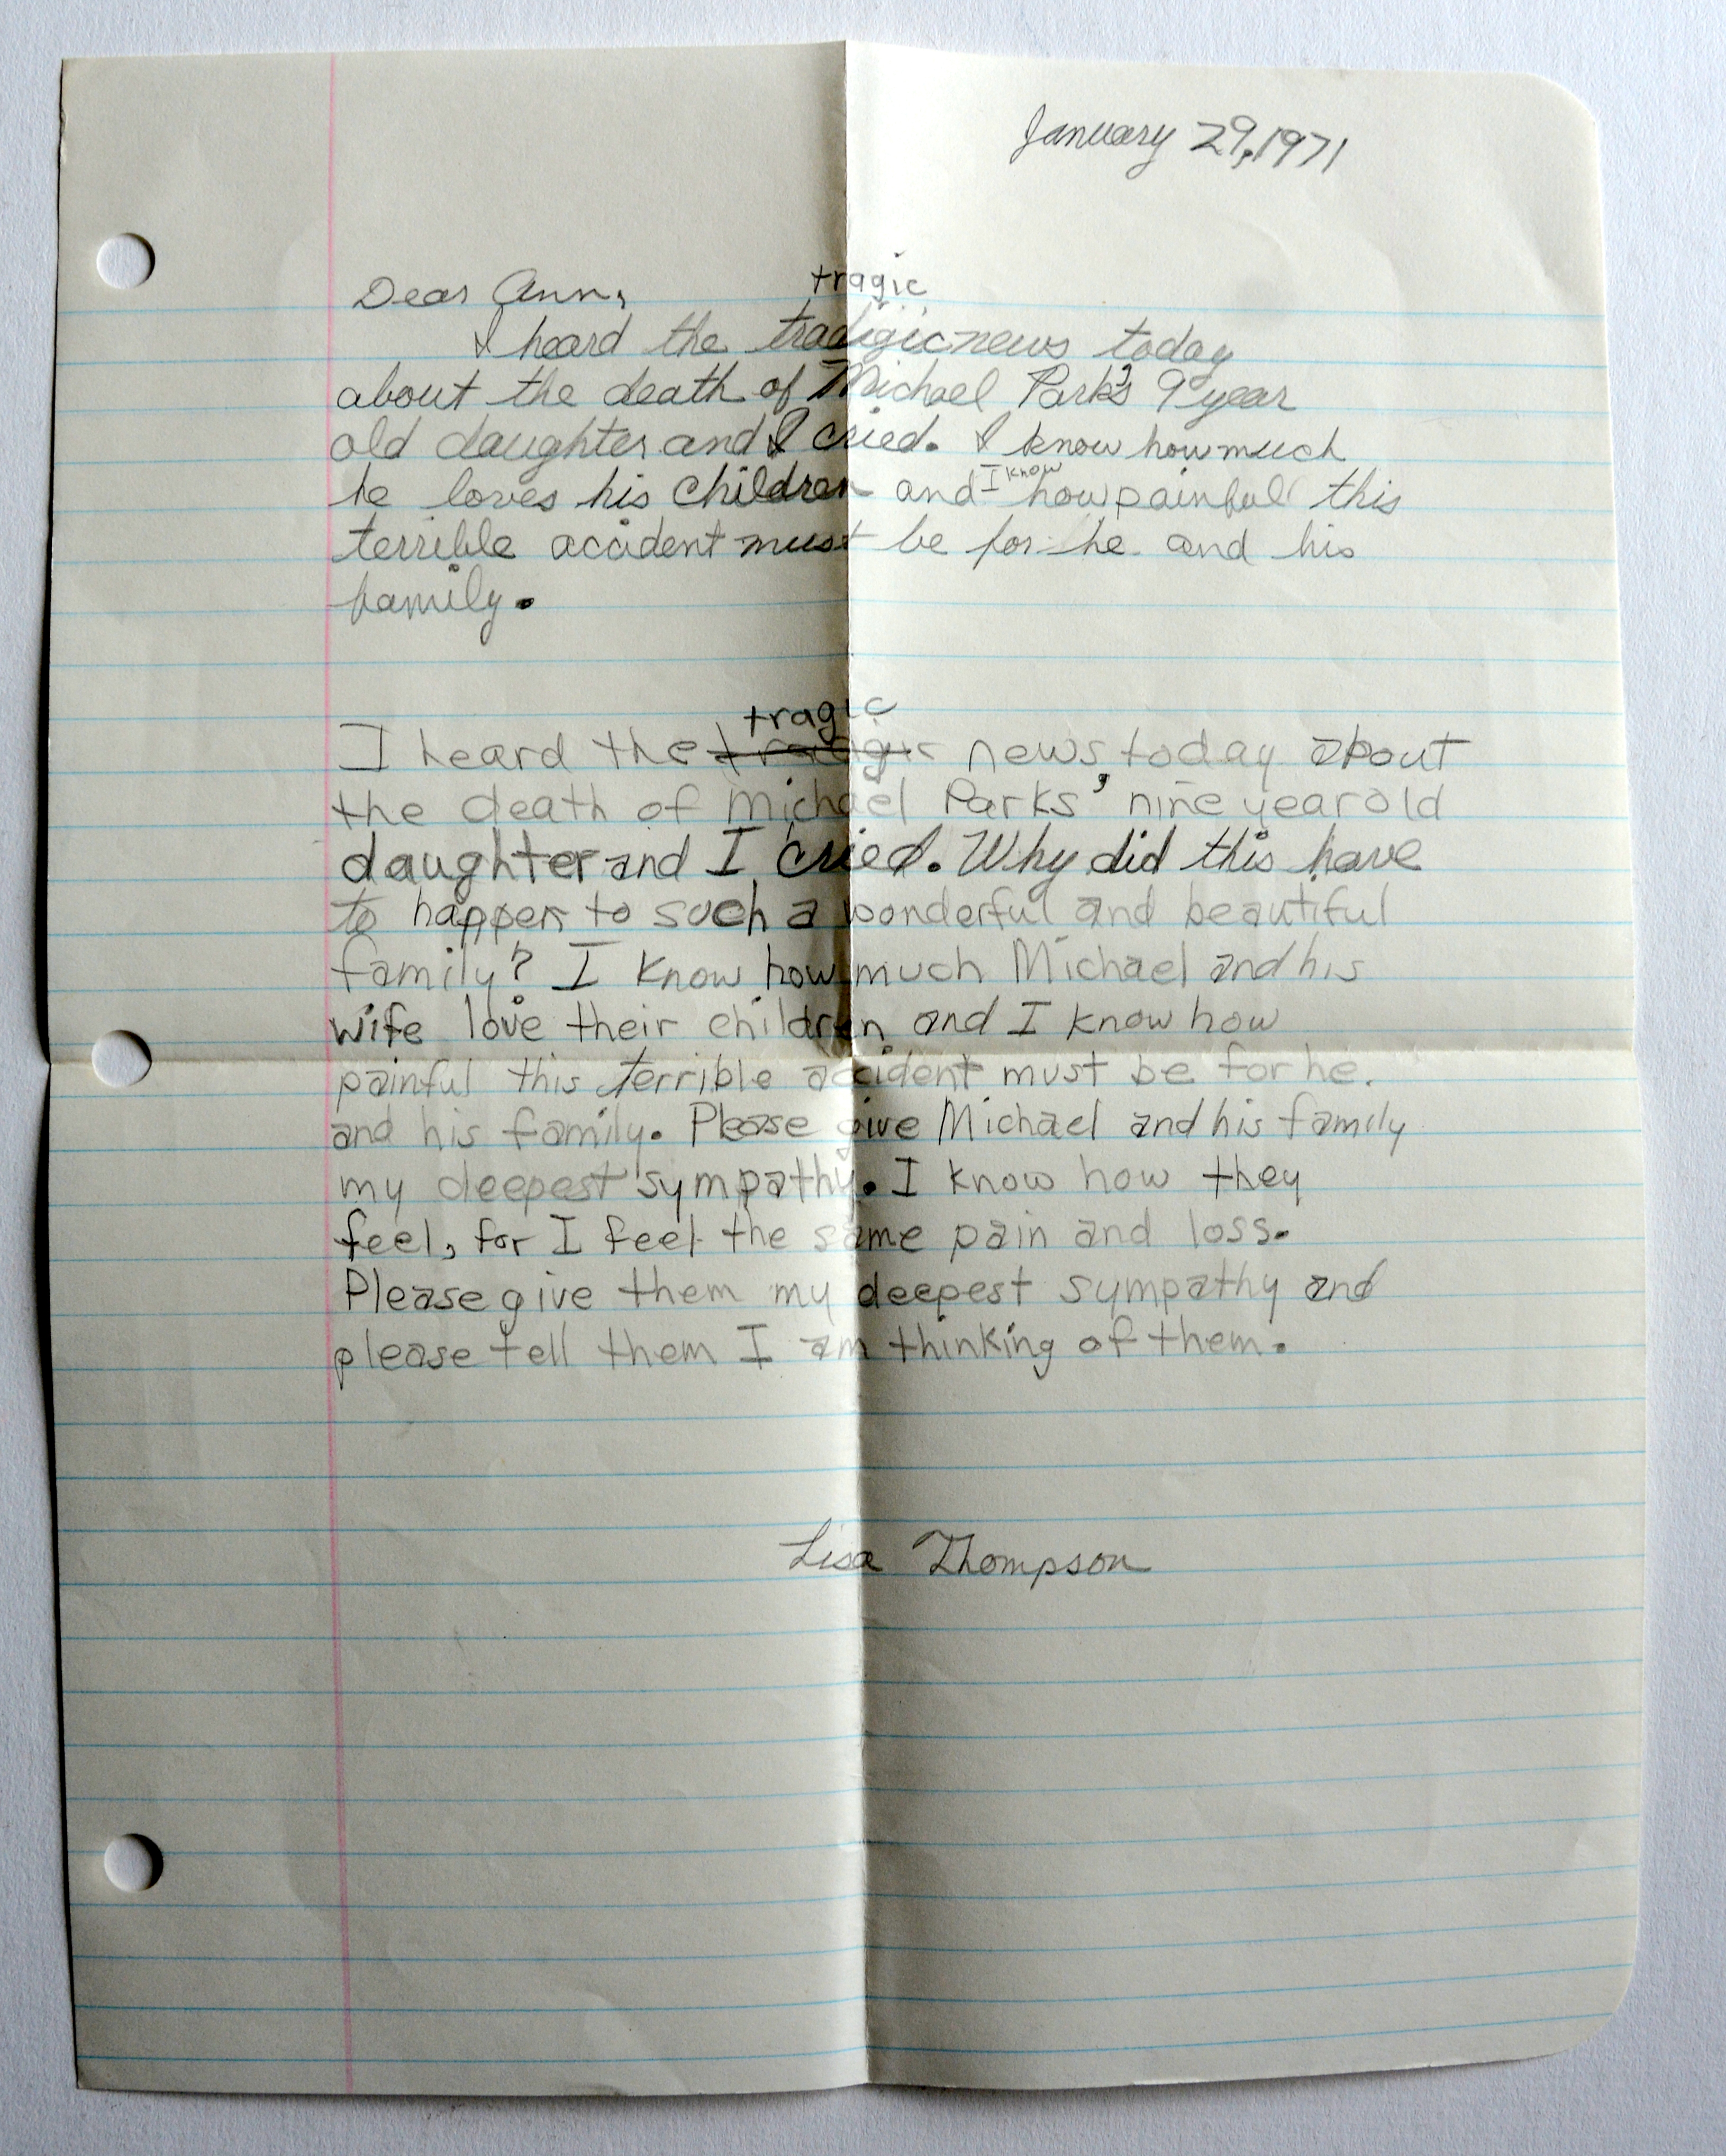 January 29, 1971
Dear Ann,
tragic
I heard the tradigic news today
about the death of Michael Park's 9 year
old daughter and I cried. I know how much
I know
he loves his children and how painful this
terrible accident must be for he and his
family.
tragic
I heard the news today about
the death of Michael Parks' nine year old
daughter and I cried. Why did this have
to happen to such a wonderful and beautiful
family? I know how much Michael and his
wife love their children and I know how
painful this terrible accident must be for he.
and his family. Please give Michael and his family
my deepest sympathy. I know how they
feel, for I feel the same pain and loss.
Please give them my deepest sympathy and
please tell them I am thinking of them.
Lisa Thompson